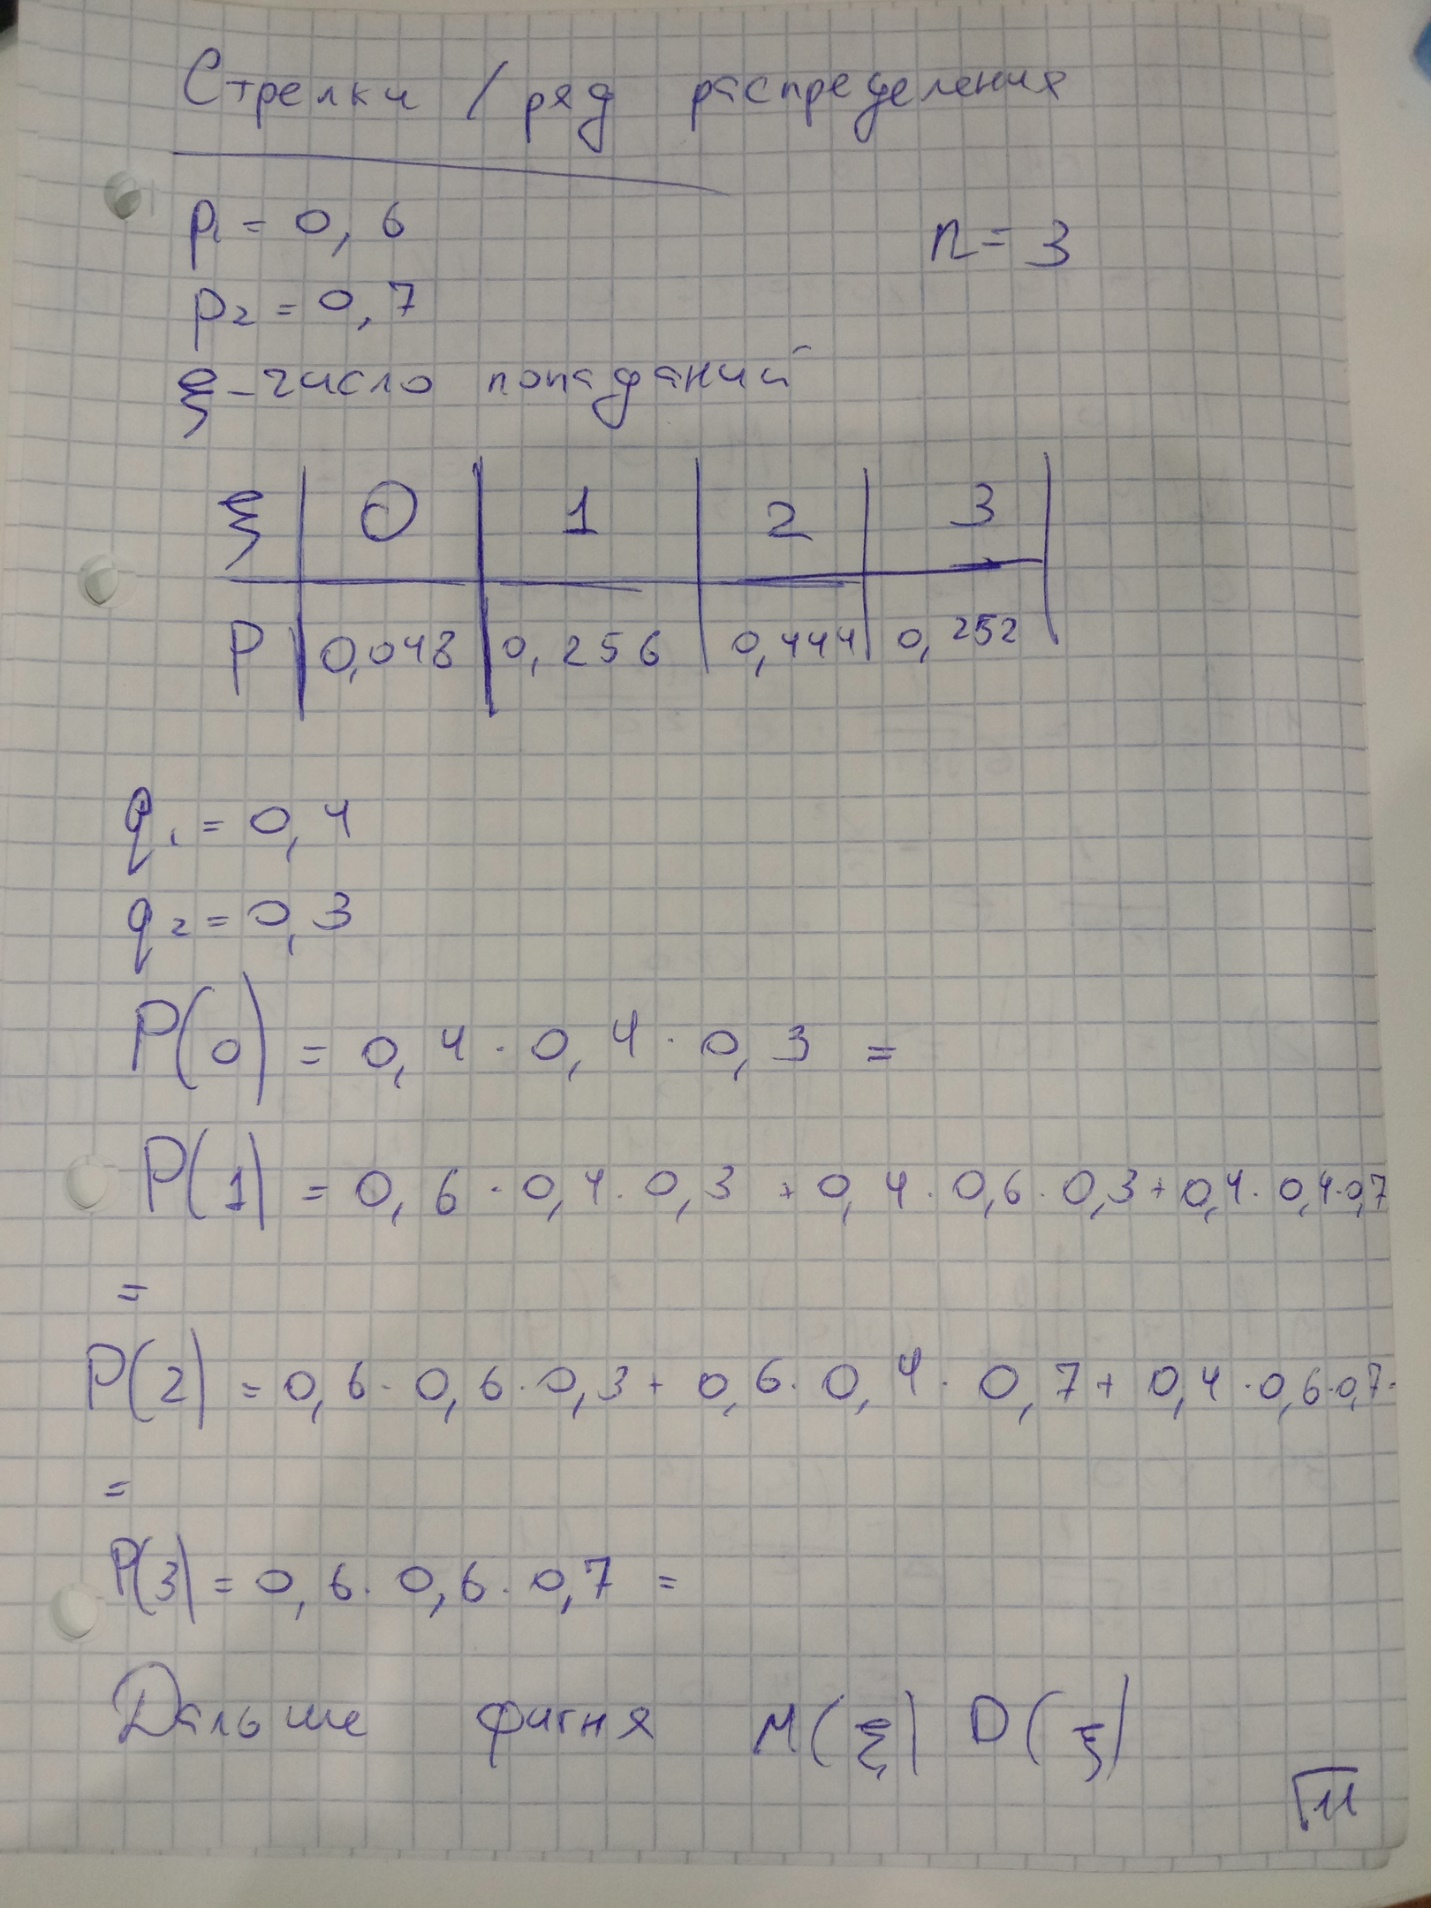 Стрелки / ряд распределения
p1 = 0,6 n = 3
p2 = 0,7
ξ - число попаданий
ξ | 0 | 1 | 2 | 3 |
P | 0,048 | 0,256 | 0,444 | 0,252 |
q1 = 0,4
q2 = 0,3
P(0) = 0,4 · 0,4 · 0,3 =
P(1) = 0,6 · 0,4 · 0,3 + 0,4 · 0,6 · 0,3 + 0,4 · 0,4 · 0,7
=
P(2) = 0,6 · 0,6 · 0,3 + 0,6 · 0,4 · 0,7 + 0,4 · 0,6 · 0,7
=
P(3) = 0,6 · 0,6 · 0,7 =
Дальше фигня M(ξ) D(ξ)